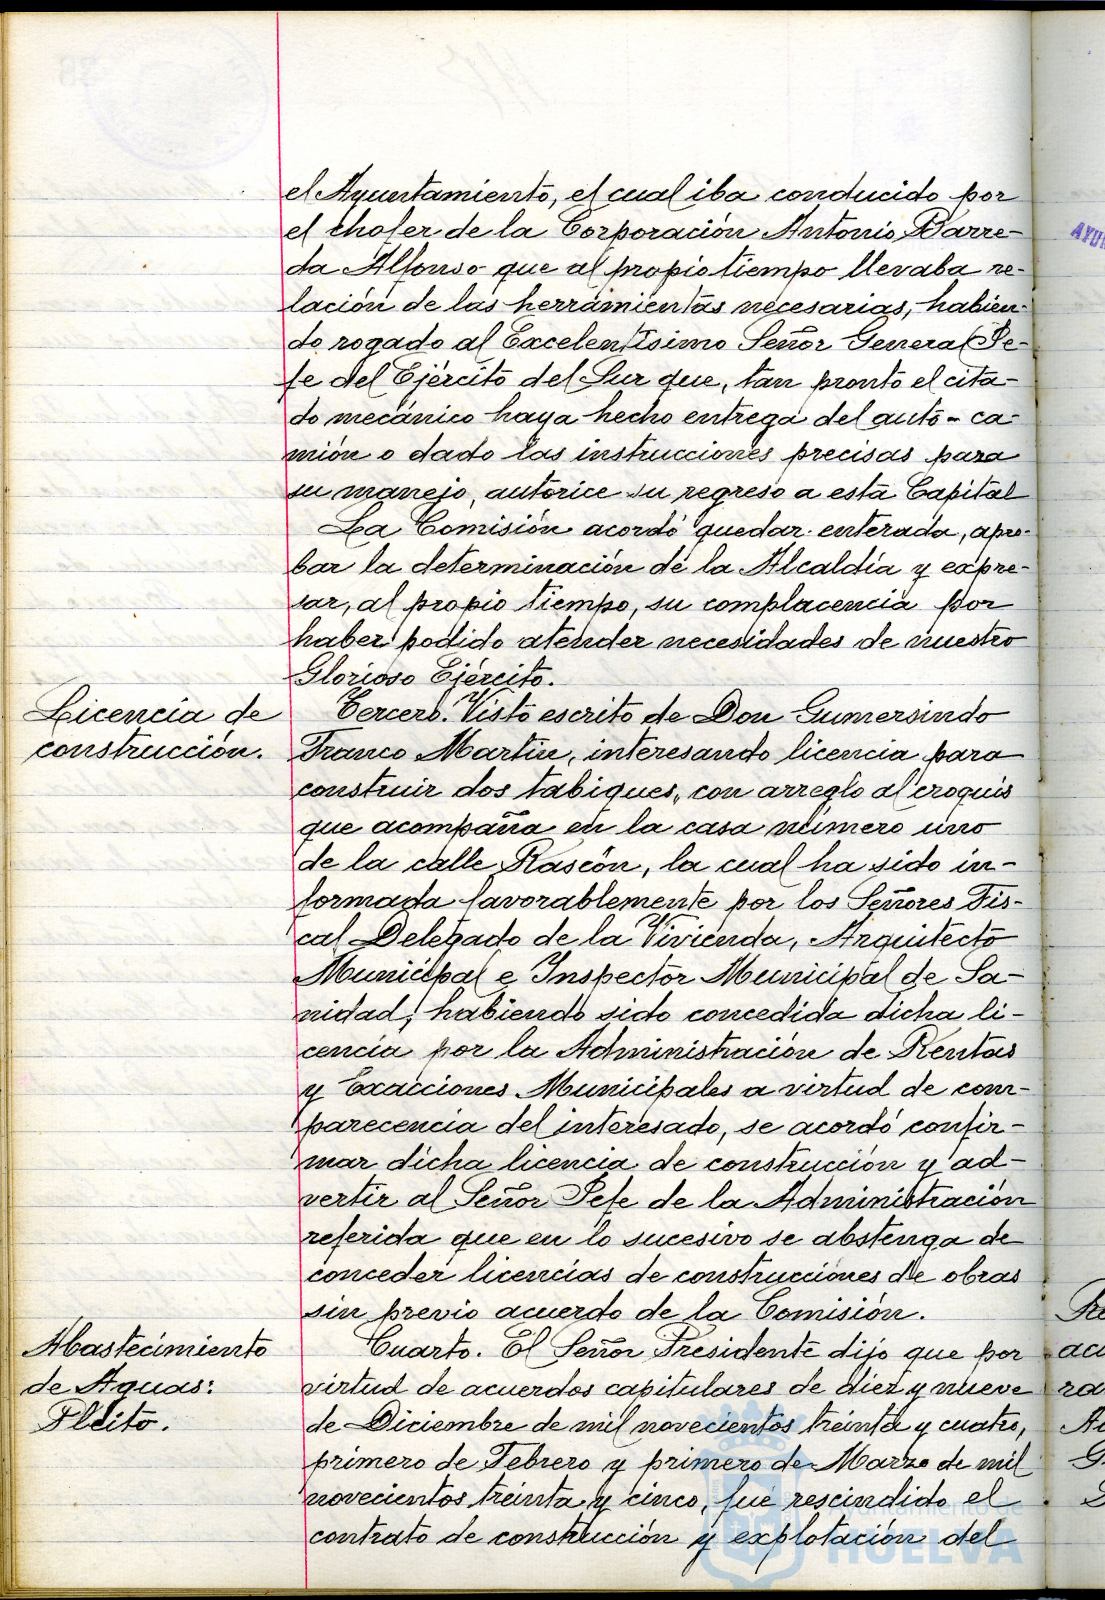 el Ayuntamiento, el cual iba conducido por
el chofer de la Corporación Antonio Barre-
da Alfonso que al propio tiempo llevaba re-
lación de las herramientas necesarias, habien-
do rogado al Excelentísimo Señor General Je-
fe del Ejército del Sur que, tan pronto el cita-
do mecánico haya hecho entrega del auto-ca-
mión o dado las instrucciones precisas para
su manejo, autorice su regreso a esta Capital
La Comisión acordó quedar enterada, apro-
bar la determinación de la Alcaldía y expre-
sar, al propio tiempo, su complacencia por
haber podido atender necesidades de nuestro
Glorioso Ejército.
Licencia de
construcción.
Tercero. Visto escrito de Don Gumersindo
Franco Martín, interesando licencia para
construir dos tabiques, con arreglo al croquis
que acompaña en la casa número uno
de la calle Rascón, la cual ha sido in-
formada favorablemente por los Señores Fis-
cal Delegado de la Vivienda, Arquitecto
Municipal e Inspector Municipal de Sa-
nidad; habiendo sido concedida dicha li-
cencia por la Administración de Rentas
y Exacciones Municipales a virtud de com-
parecencia del interesado, se acordó confir-
mar dicha licencia de construcción y ad-
vertir al Señor Jefe de la Administración
referida que en lo sucesivo se abstenga de
conceder licencias de construcciones de obras
sin previo acuerdo de la Comisión.
Abastecimiento
de Aguas:
Pleito.
Cuarto. El Señor Presidente dijo que por
virtud de acuerdos capitulares de diez y nueve
de Diciembre de mil novecientos treinta y cuatro,
primero de Febrero y primero de Marzo de mil
novecientos treinta y cinco, fue rescindido el
contrato de construcción y explotación del
Ayuntamiento de
HUELVA